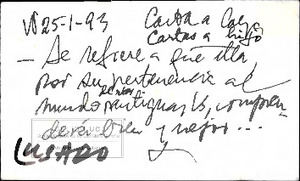 V 25-1-93 Carta a
Cartas a hijo
— Se refiere a que ella,
por su pertenencia al
mundo antiguas, compren-
derá bien y mejor...
USADO